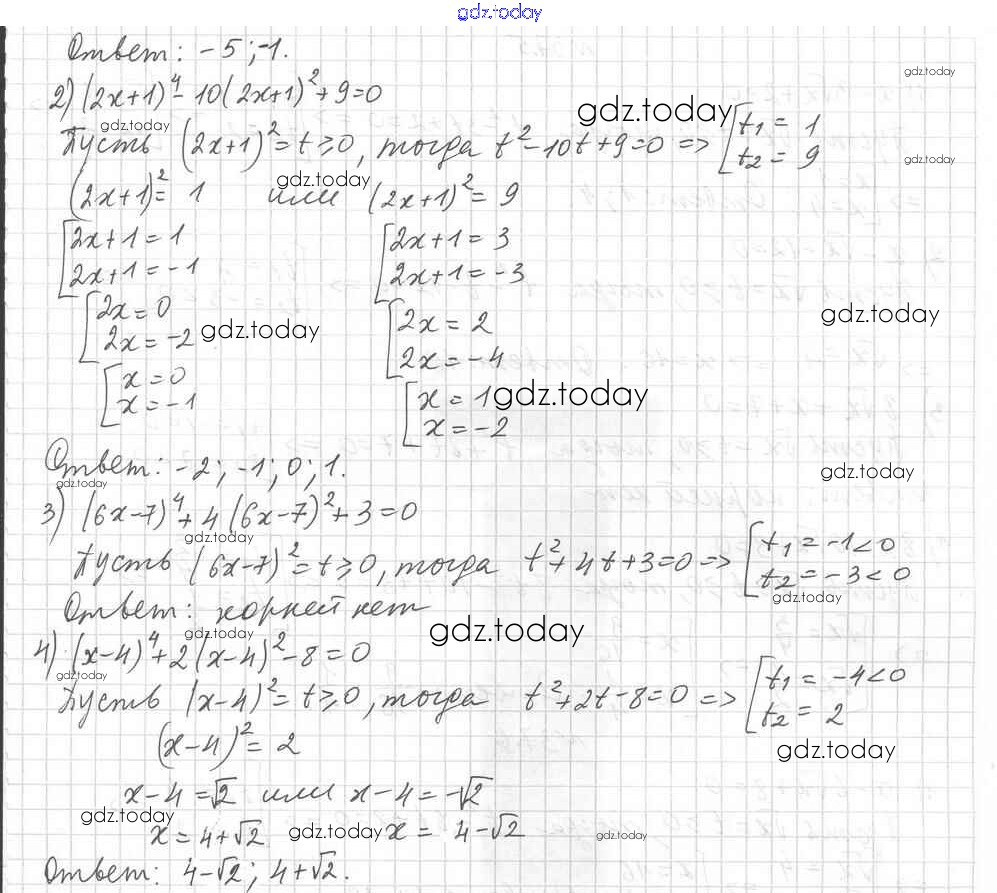 gdz.today
Ответ: -5; -1.
gdz.today
2) (2x+1)⁴ - 10(2x+1)² + 9 = 0
gdz.today gdz.today
Пусть (2x+1)² = t ≥ 0, тогда t² - 10t + 9 = 0 => [t₁ = 1
t₂ = 9 gdz.today
gdz.today
(2x+1)² = 1 или (2x+1)² = 9
[2x+1 = 1 [2x+1 = 3
2x+1 = -1 2x+1 = -3
[2x = 0 [2x = 2 gdz.today
2x = -2 gdz.today 2x = -4
[x = 0 [x = 1 gdz.today
x = -1 x = -2
Ответ: -2; -1; 0; 1. gdz.today
gdz.today
3) (6x-7)⁴ + 4(6x-7)² + 3 = 0
gdz.today
Пусть (6x-7)² = t ≥ 0, тогда t² + 4t + 3 = 0 => [t₁ = -1 < 0
t₂ = -3 < 0
gdz.today
Ответ: корней нет
gdz.today gdz.today
4) (x-4)⁴ + 2(x-4)² - 8 = 0
gdz.today
Пусть (x-4)² = t ≥ 0, тогда t² + 2t - 8 = 0 => [t₁ = -4 < 0
t₂ = 2
(x-4)² = 2 gdz.today
x-4 = √2 или x-4 = -√2
gdz.today
x = 4+√2 gdz.today x = 4-√2 gdz.today
Ответ: 4-√2; 4+√2.